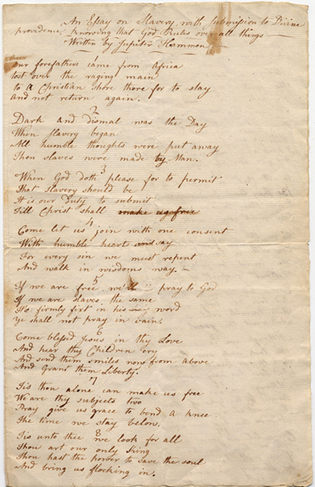 An Essay on Slavery, with Submission to Divine
providence, knowing that God Rules over all things
Written by Jupiter Hammon
1
Our forefathers came from Africa
tost over the raging main
to a Christian shore there for to stay
And not return again.
2
Dark and dismal was the Day
When slavery began
All humble thoughts were put away
Then slaves were made by Man.
3
When God doth please for to permit
That slavery should be
It is our duty to submit
Till Christ shall make us free
4
Come let us join with one consent
With humble hearts and say
For every sin we must repent
And walk in wisdoms way.
5
If we are free we'll pray to God
If we are slaves the same
It's firmly fixt in his word
Ye shall not pray in vain.
6
Come blessed Jesus in thy Love
And hear thy Children cry
And send them smiles now from above
And Grant them Liberty.
7
Tis thou alone can make us free
We are thy subjects two
Pray give us grace to bend a knee
The time we stay below.
8
Tis unto thee we look for all
Thou art our only King
Thou hast the power to save the soul
And bring us flocking in.